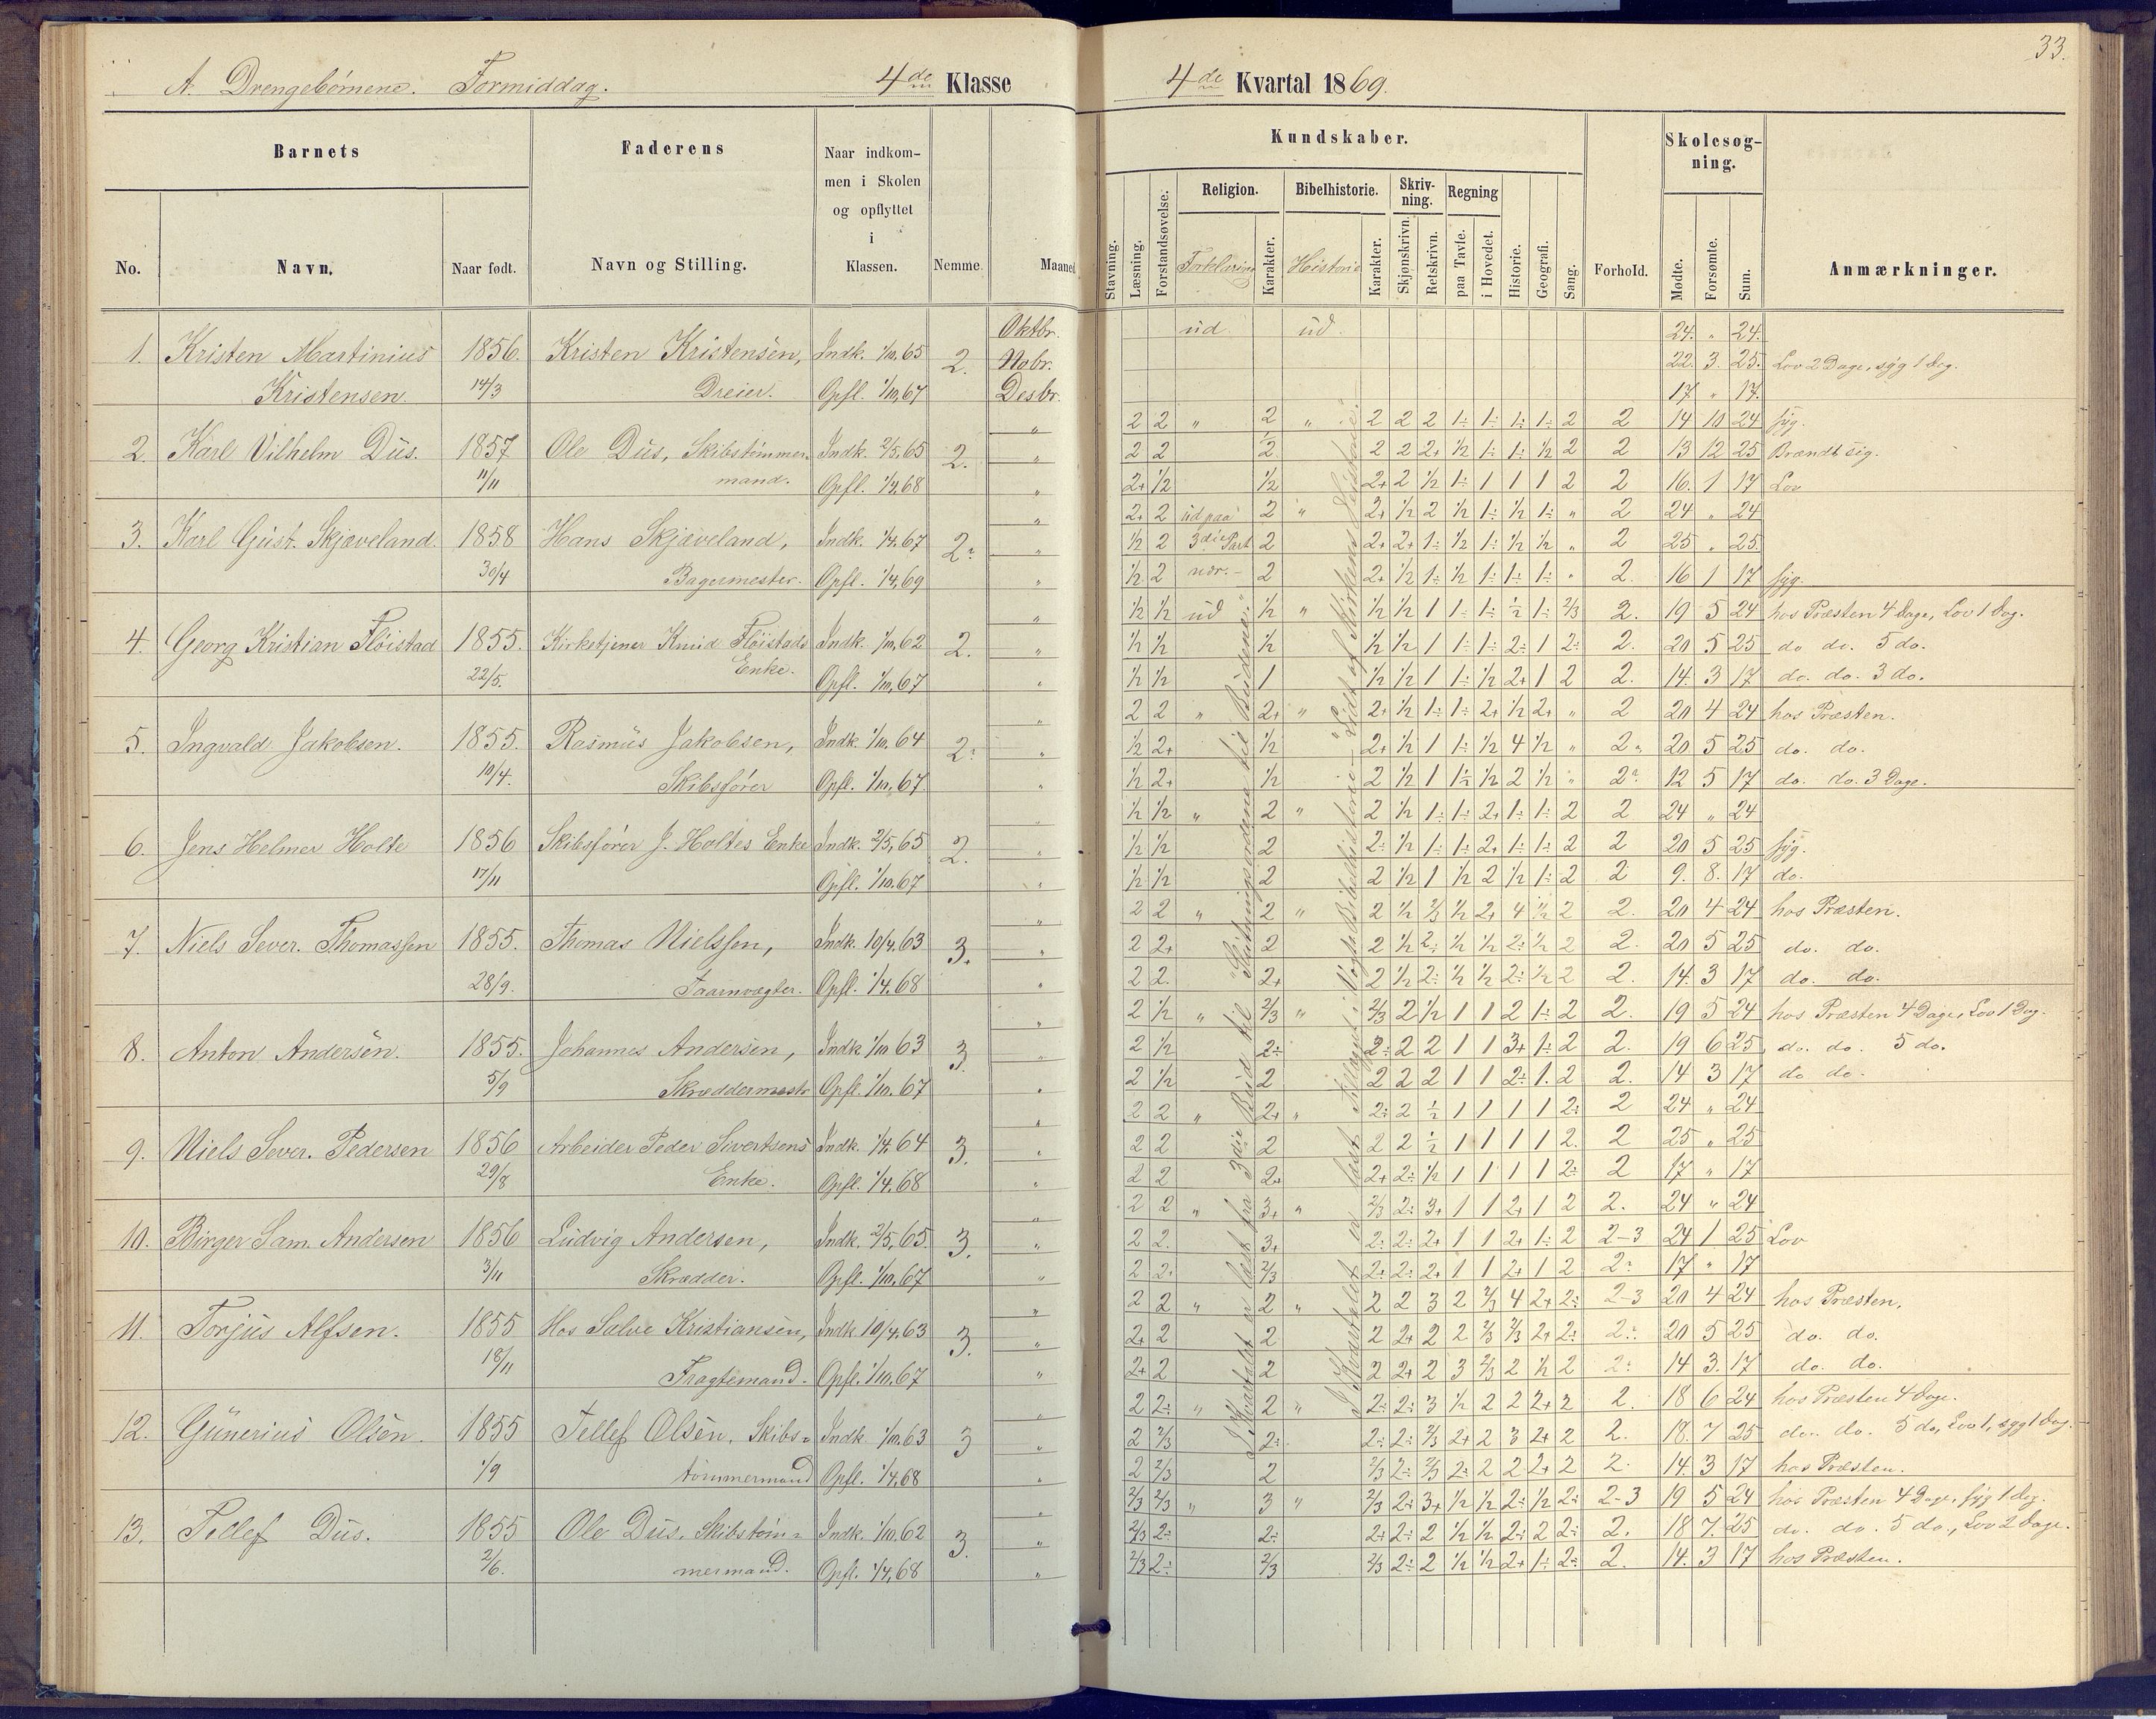 33.
A. Drengebörnene. Formiddag. 4de Klasse
4de Kvartal 1869.
Barnets
Faderens
Naar indkom-
men i Skolen
og opflyttet
i
Klassen.
No.
Navn.
Naar født.
Navn og Stilling.
Nemme.
Maaned
Kundskaber.
Skolesøg-
ning.
Religion. Bibelhistorie. Skriv-
ning. Regning
Stavning. Læsning. Forstandsøvelse. Forklaring Karakter. Historie Karakter. Skjønskrivn. Retskrivn. paa Tavle. i Hovedet. Historie. Geografi. Sang. Forhold. Mødte. Forsømte. Sum. Anmærkninger.
Oktbr. ud. ud. 24. " 24.
1. Kristen Martinius 1856. Kristen Kristensen, Indk. 1/10.65 2. Nobr. 22. 3. 25. Lov 2 Dage, syg 1 Dag.
Kristensen. 14/3 Dreier. Opfl. 1/10.67 Desbr. 17 " 17.
" 2 2 " 2 " 2 2 2 1÷ 1÷ 1÷ 1÷ 2 2 14 10 24 syg.
2. Karl Vilhelm Dus. 1857 Ole Dus, Skibstømmer- Indk. 2/5.65 2. " 2 2 1/2 2 2 2+ 1/2 1÷ 1÷ 1/2 2 2 13 12 25 Brændt sig.
11/11 mand. Opfl. 1/4.68 " 2+ 1/2 1/2 2+ 2 1/2 1÷ 1 1 1 2 2 16. 1 17 Lov
" 2+ 2 ud paa 2 " 2+ 1/2 2 1/2 1÷ 1/2 1÷ " 2 24 " 24
3. Karl Gust. Skjæveland. 1858 Hans Skjæveland, Indk. 1/4.67 2÷ " 1/2 2 3die Part 2 2+ 2+ 1÷ 1/2 1÷ 1/2 1/2 " 2 25 " 25.
30/4 Bagermester. Opfl. 1/4.69 " 1/2 2 2 2+ 1/2 1÷ 1/2 1÷ 1÷ 1÷ " 2. 16 1 17 syg.
" 1/2 1/2 ud 1/2 " 1/2 1/2 1 1÷ 1÷ 1/2 1÷ 2/3 2. 19 5 24 hos Præsten 4 Dage, Lov 1 Dag.
4. Georg Kristian Fløistad 1855. Kirketjener Knud Fløistads Indk. 1/10.62 2. " 1/2 1/2 1/2 1/2 1/2 1 1÷ 1÷ 2÷ 1 2÷ 2. 20 5 25 do do. 5 do.
22/5. Enke. Opfl. 1/10.67 " 1/2 1/2 1 1/2 1/2 1 1÷ 1/2 2+ 1 2 2. 14. 3 17 do. do. 3 do.
" 2 2 " 2+ " 2+ 1/2 1÷ 1÷ 2+ 1/2 2+ " 2 20 4 24 hos Præsten.
5. Ingvald Jakobsen. 1855. Rasmus Jakobsen, Indk. 1/10.64 2÷ " 1/2 2+ 1/2 2+ 1/2 1 1÷ 1/2 4 1/2 " 2÷ 20 5 25 do. do.
10/4. Skibsfører Opfl. 1/10.67. " 1/2 2+ 1/2 2 1/2 1 1/2 1/2 2 1/2 " 2÷ 12 5 17 do. do. 3 Dage.
" 1/2 1/2 " 2 " 2 1/2 1÷ 1÷ 2+ 1÷ 1÷ 2 2 24 " 24
6. Jens Helmer Holte 1856 Skibsfører J. Holtes Enke Indk. 2/5.65 2. " 1/2 1/2 2 2÷ 1/2 1÷ 1÷ 2+ 1÷ 1÷ 2 2 20 5 25 syg.
17/11 Opfl. 1/10.67 " 1/2 1/2 2 2 1/2 1 1/2 2 1/2 1÷ 2 2 9. 8. 17 do.
" 2 2 " 2 " 2 1/2 2/3 1/2 2+ 4 1/2 2 2. 20 4 24 hos Præsten.
7. Niels Sever. Thomassen 1855. Thomas Nielssen, Indk. 10/4.63 3. " 2 2+ 2 2 1/2 2÷ 1/2 1/2 2÷ 1/2 2 2. 20 5 25 do. do.
28/9. Taarnvægter. Opfl. 1/4.68 " 2 2. 2+ 2 1/2 2÷ 1/2 1/2 2÷ 1/2 2 2. 14. 3 17 do. do.
" 2 1/2 " 2/3 " 2/3 2 1/2 1 1 2 1÷ 2 2. 19 5 24 hos Præsten 4 Dage, Lov 1 Dag.
8. Anton Andersen. 1855. Johannes Andersen, Indk 1/10 63 3. " 2 1/2 2÷ 2÷ 2 2 1 1 3+ 1÷ 2 2. 19 6 25 do. do. 5 do.
5/9 Skræddermestr Opfl. 1/10.67 " 2 1/2 2 2 2 2 1 1 2÷ 1. 2 2. 14 3 17 do do.
" 2 2 " 2+ " 2÷ 2 1/2 1 1 1 1 2÷ 2 24 " 24
9. Niels Sever. Pedersen 1856 Arbeider Peder Sivertsens Indk. 1/4.64 3. " 2 2 2 2 2 1/2 1 1 1 1 2. 2 25 " 25
29/8 Enke. Opfl. 1/4.68 " 2 2 2+ 2+ 2÷ 1/2 1 1 1 1 2÷ 2 17 " 17
" 2 2 " 3+ " 2/3 2÷ 3+ 1 1 2+ 1 2 2. 24 " 24
10. Birger Sam. Andersen 1856 Ludvig Andersen, Indk. 2/5.65. 3. " 2 2. 3+ 2÷ 2÷ 2+ 1 1 2+ 1÷ 2 2-3 24 1 25 Lov
3/11 Skrædder. Opfl. 1/10.67 " 2 2÷ 2/3 2÷ 2÷ 2+ 1 1 2+ 1 2 2÷ 17 " 17
" 2 2 " 2 " 2 2 3 2 2/3 4 2+ 2÷ 2-3 20 4 24 hos Præsten.
11. Torjus Alfsen. 1855 Hos Salve Kristiansen, Indk 10/4.63 3. " 2+ 2 2 2 2+ 2 2 2/3 2/3 2+ 2÷ 2÷ 20 5 25 do. do.
18/11 Fragtemand. Opfl. 1/10.67 " 2+ 2 2 2 2+ 2 3 2/3 2 1/2 2 2÷ 14 3. 17 do. do.
" 2 2÷ " 2 " 2÷ 2÷ 3 1/2 2 2 2+ 2 2. 18 6 24 hos Præsten 4 Dage.
12. Gunerius Olsen. 1855 Tellef Olsen, Skibs- Indk. 1/10.63 3 " 2 2/3 2÷ 2÷ 2÷ 2/3 2+ 2 3 2+ 2 2. 18. 7 25 do. do. 5 do, Lov 1, syg 1 Dag.
1/9 tømmermand Opfl. 1/4.68 " 2 2/3 2 2/3 2÷ 2/3 2÷ 2 2 2+ 2 2. 14. 3 17 hos Præsten.
" 2/3 2/3 " 3 " 2/3 2÷ 3+ 1/2 1/2 2÷ 1/2 2÷ 2-3 19 5 24 hos Præsten 4 Dage, syg 1 Dag.
13. Tellef Dus. 1855 Ole Dus, Skibstøm- Indk. 1/10.62 3. " 2/3 2÷ 2÷ 2÷ 2÷ 2 1/2 1/2 2÷ 2 2÷ 2. 18 7. 25 do. do. 5 do., Lov 2 Dage.
2/6. mermand. Opfl. 1/4.68 " 2/3 2÷ 2/3 2/3 2÷ 2 1/2 1/2 2+ 1÷ 2÷ 2. 14. 3 17 hos Præsten.
I Kvartalet er læst fra 3die Bud til "Slutningsordene til Budene."
I Kvartalet er læst Tillæget i Vogts Bibelhistorie - "Lidt af Kirkens Historie".